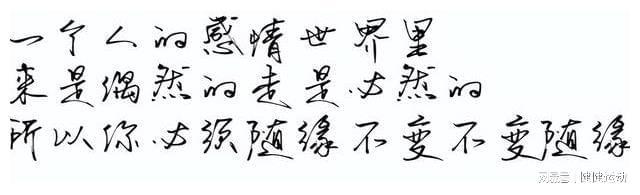 一个人的感情世界里
来是偶然的走是必然的
所以你必须随缘不变不变随缘
网易号 | 健健运动